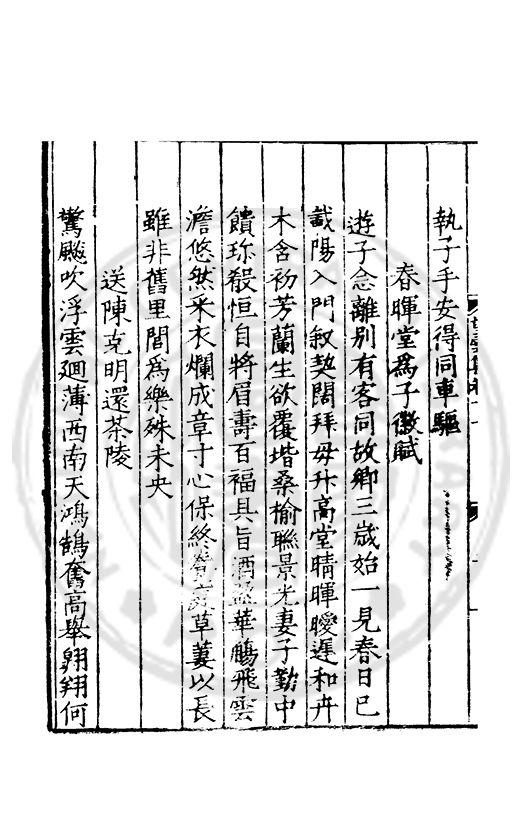 執子手安得同車驅
春暉堂為子徽賦
遊子念離別有客同故鄉三歲始一見春日已
載陽入門敘契闊拜母升高堂晴暉曖遲和卉
木含初芳蘭生欲覆堦桑榆聯景光妻子勤中
饋珎殽恒自將眉壽百福具旨酒 華鵬飛雲
澹悠然采衣爛成章寸心保終 草萋以長
雖非舊里閭為樂殊未央
送陳克明還茶陵
驚飈吹浮雲迴薄西南天鴻鵠奮高舉翱翔何